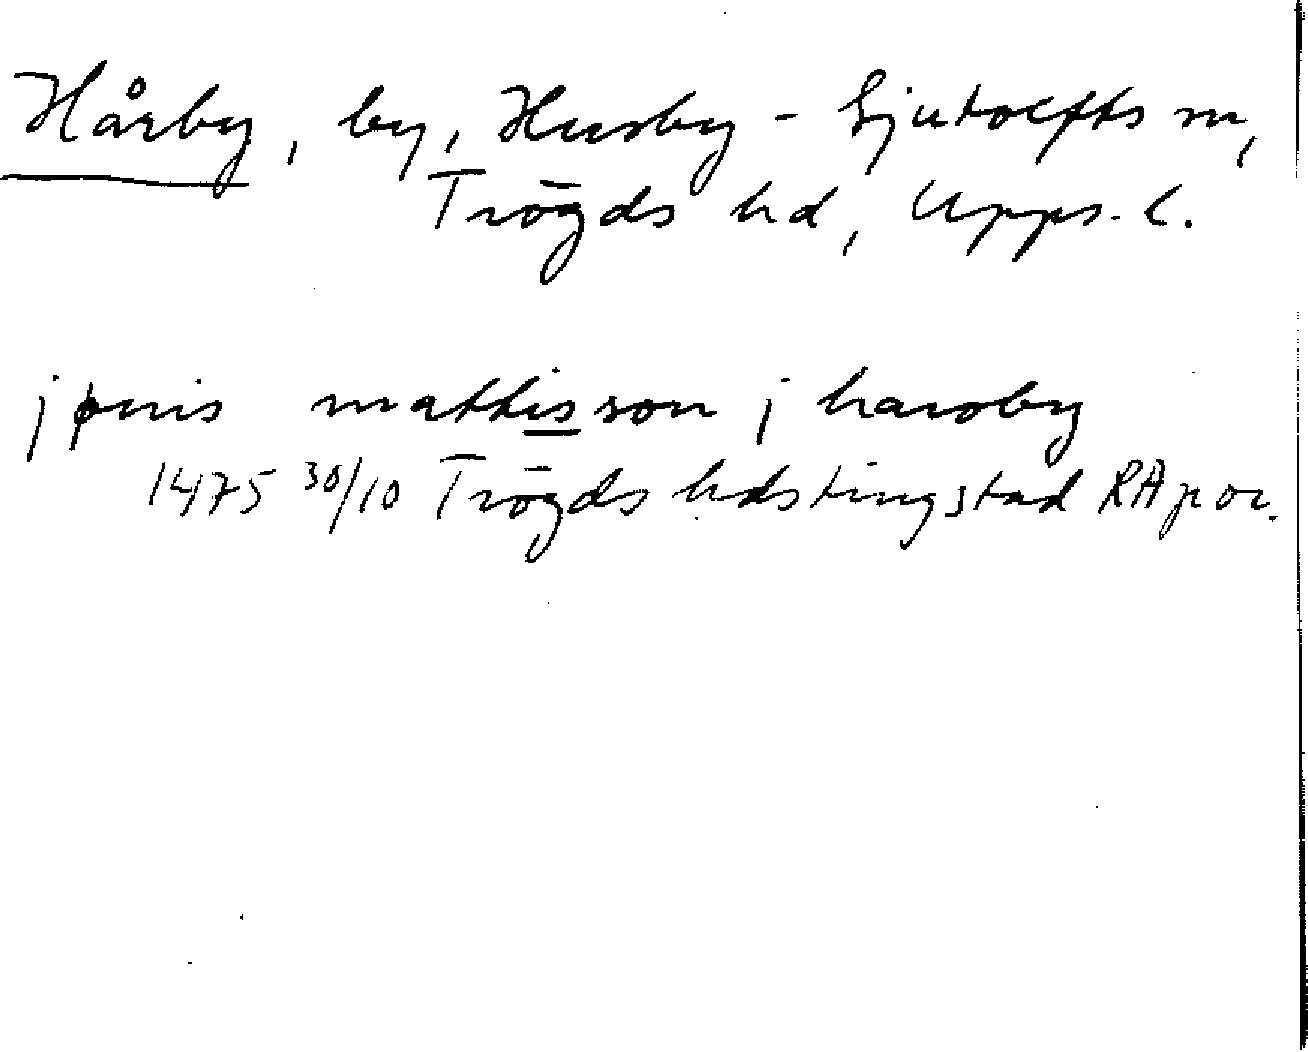 Hårby, by, Husby-Sjutolfts sn,
Trögds hd, Upps. l.
jønis mattisson j haroby
1475 30/10 Trögds hdstingstad RAp or.